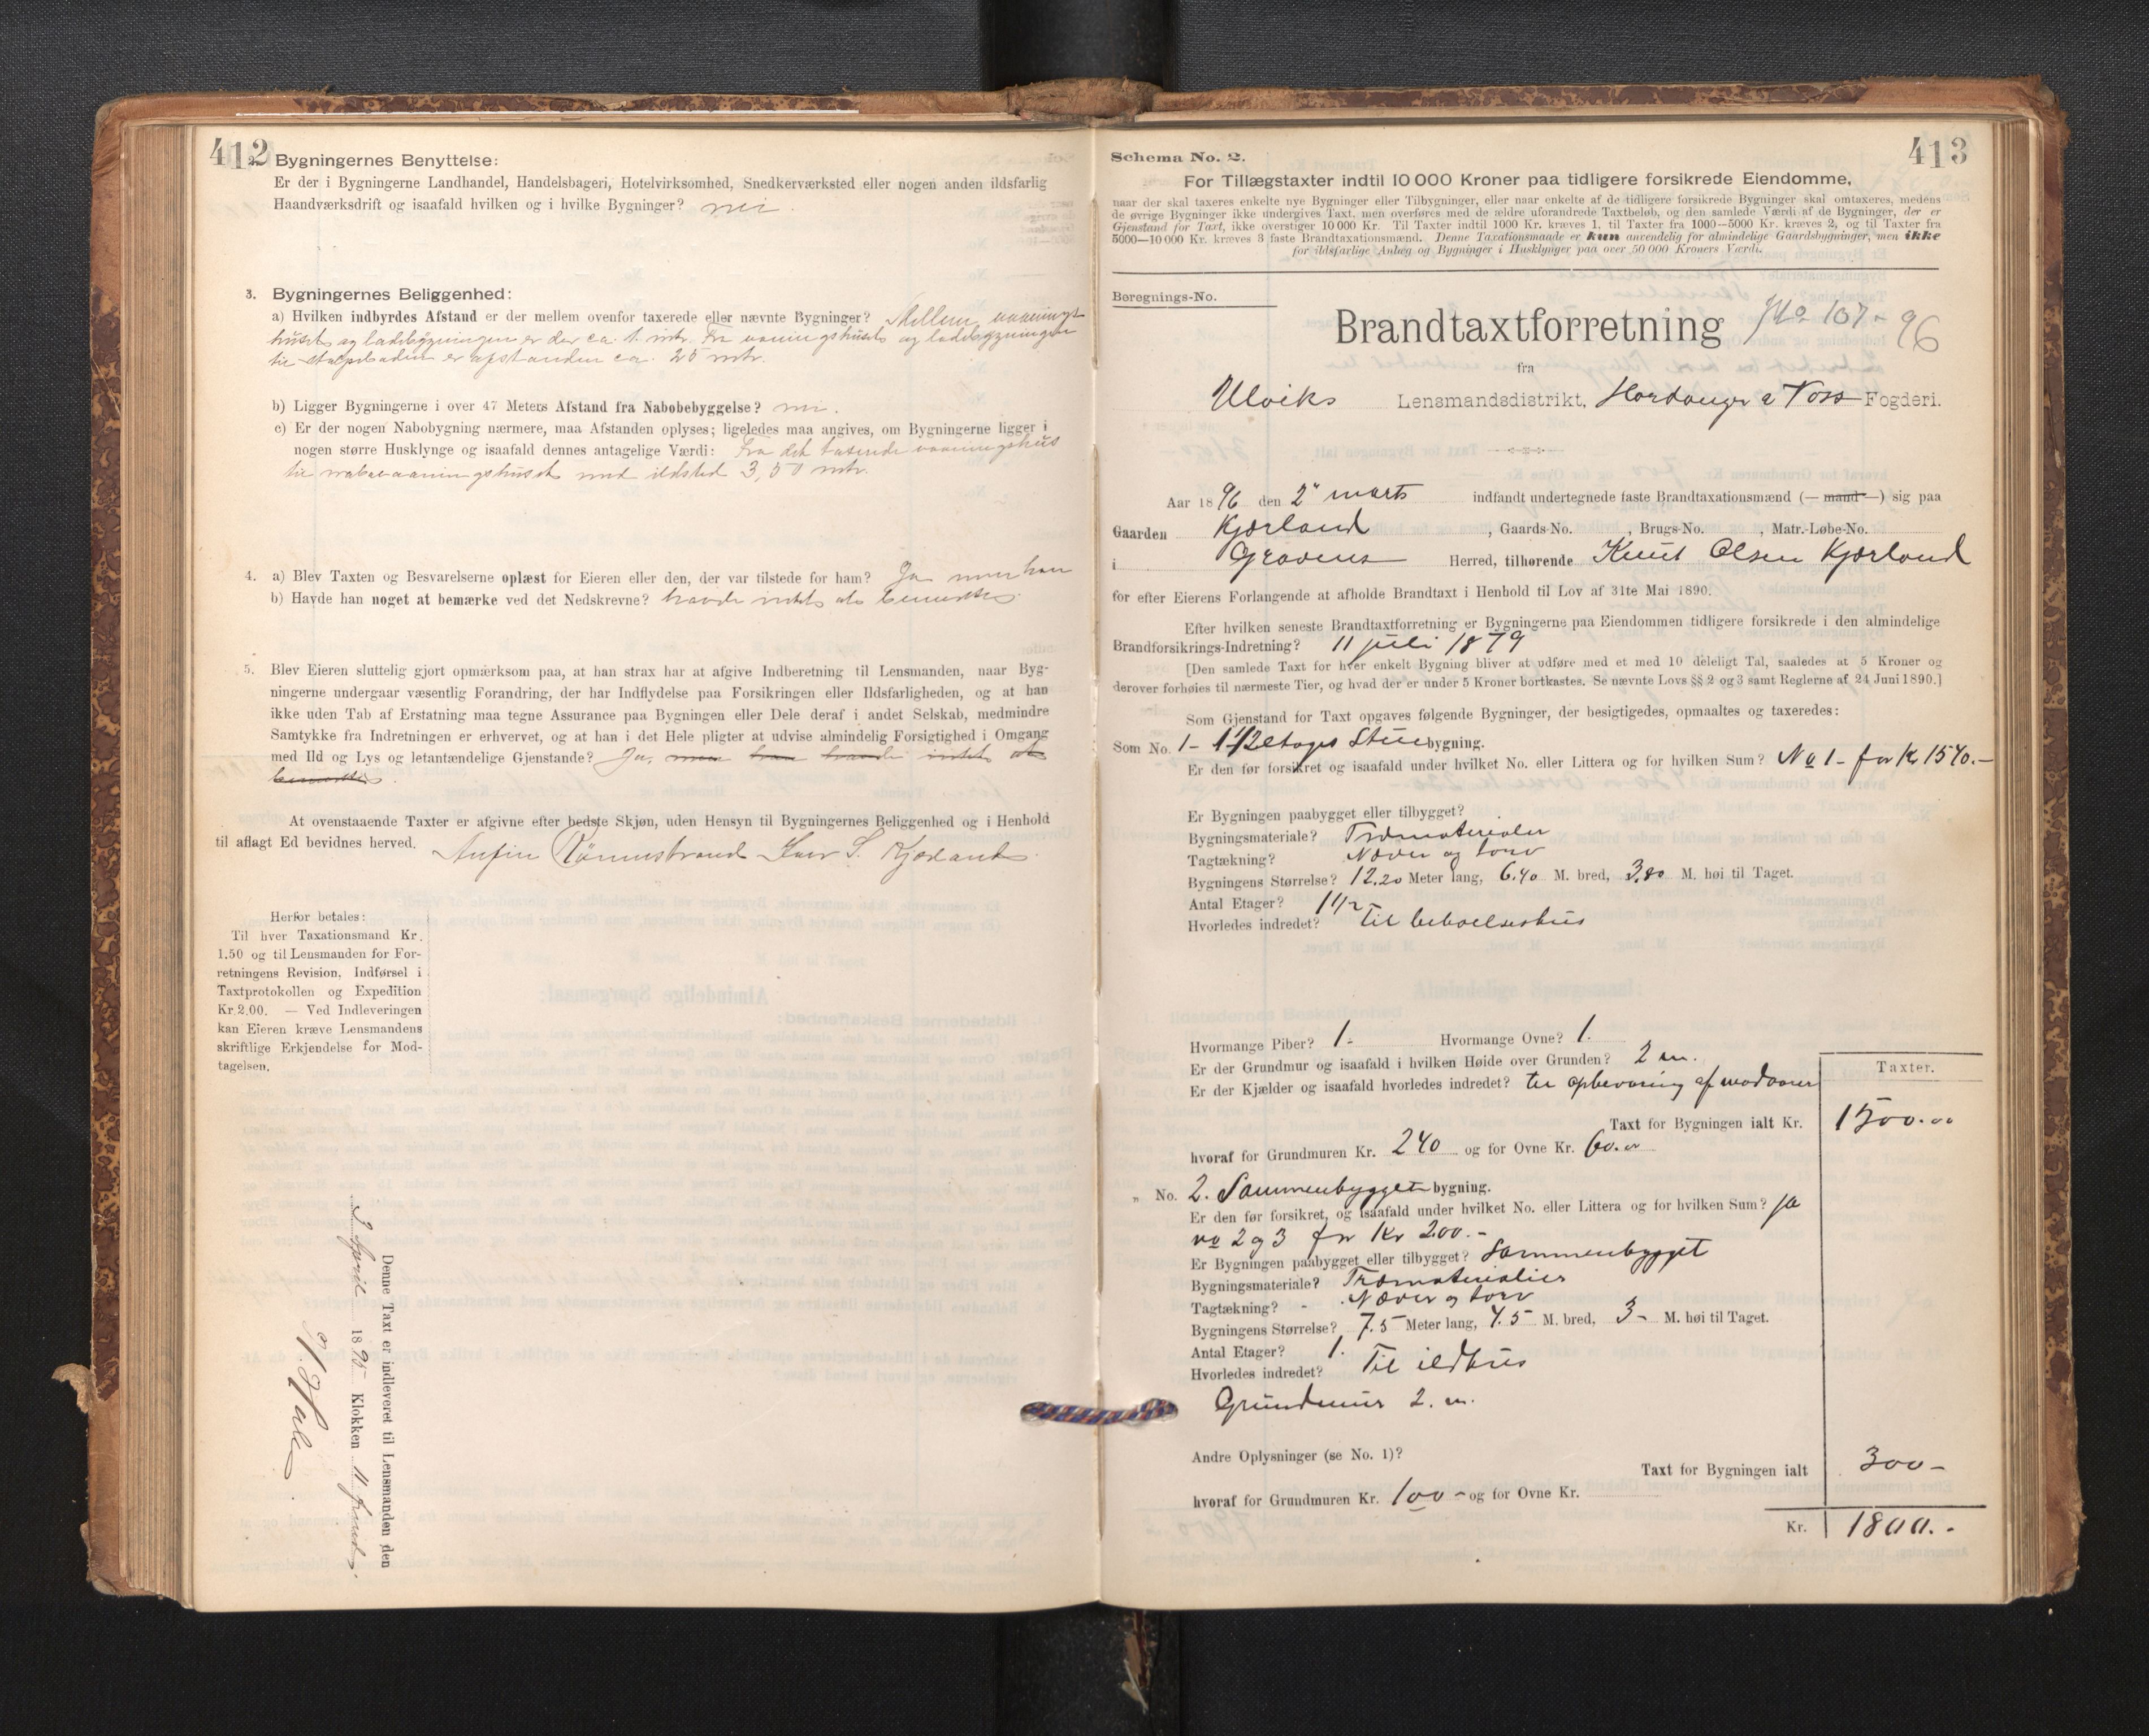 412
Bygningernes Benyttelse:
Er der i Bygningerne Landhandel, Handelsbageri, Hotelvirksomhed, Snedkerværksted eller nogen anden ildsfarlig
Haandværksdrift og isaafald hvilken og i hvilke Bygninger? nei.
3. Bygningernes Beliggenhed:
a) Hvilken indbyrdes Afstand er der mellem ovenfor taxerede eller nævnte Bygninger? Mellem vaanings
huset og ladebygningen er der ca. 1 mtr. Fra vaaningshuset og ladebygningen
til stolpeboden er afstanden ca. 25 mtr.
b) Ligger Bygningerne i over 47 Meters Afstand fra Nabobebyggelse? nei.
c) Er der nogen Nabobygning nærmere, maa Afstanden oplyses; ligeledes maa angives, om Bygningerne ligger i
nogen større Husklynge og isaafald dennes antagelige Værdi: Fra det taxerede vaaningshus
til nabovaaningshuset med ildsted 3,50 mtr.
4. a) Blev Taxten og Besvarelserne oplæst for Eieren eller den, der var tilstede for ham? Ja men han
b) Havde han noget at bemærke ved det Nedskrevne? havde intet at bemærke.
5. Blev Eieren sluttelig gjort opmærksom paa, at han strax har at afgive Indberetning til Lensmanden, naar Byg-
ningerne undergaar væsentlig Forandring, der har Indflydelse paa Forsikringen eller Ildsfarligheden, og at han
ikke uden Tab af Erstatning maa tegne Assurance paa Bygningen eller Dele deraf i andet Selskab, medmindre
Samtykke fra Indretningen er erhvervet, og at han i det Hele pligter at udvise almindelig Forsigtighed i Omgang
med Ild og Lys og letantændelige Gjenstande? Ja, men han havde intet at
bemærke.
At ovenstaaende Taxter er afgivne efter bedste Skjøn, uden Hensyn til Bygningernes Beliggenhed og i Henhold
til aflagt Ed bevidnes herved.
Anfin Rønnestrand Iver S. Kjærland
Herfor betales:
Til hver Taxationsmand Kr.
1.50 og til Lensmanden for For-
retningens Revision, Indførsel i
Taxtprotokollen og Expedition
Kr. 2.00. — Ved Indleveringen
kan Eieren kræve Lensmandens
skriftlige Erkjendelse for Mod-
tagelsen.
Denne Taxt er indleveret til Lensmanden den
2 April 1895 Klokken 11 formd.
413
Schema No. 2.
For Tillægstaxter indtil 10 000 Kroner paa tidligere forsikrede Eiendomme,
naar der skal taxeres enkelte nye Bygninger eller Tilbygninger, eller naar enkelte af de tidligere forsikrede Bygninger skal omtaxeres, medens
de øvrige Bygninger ikke undergives Taxt, men overføres med de ældre uforandrede Taxtbeløb, og den samlede Værdi af de Bygninger, der er
Gjenstand for Taxt, ikke overstiger 10 000 Kr. Til Taxter indtil 1000 Kr. kræves 1, til Taxter fra 1000—5000 Kr. kræves 2, og til Taxter fra
5000—10 000 Kr. kræves 3 faste Brandtaxationsmænd. Denne Taxationsmaade er kun anvendelig for almindelige Gaardsbygninger, men ikke
for ildsfarlige Anlæg og Bygninger i Husklynger paa over 50 000 Kroners Værdi.
Beregnings-No.
Brandtaxtforretning No 107-96
fra
Ulviks Lensmandsdistrikt, Hardanger & Voss Fogderi.
Aar 1896 den 2' marts indfandt undertegnede faste Brandtaxationsmænd (— mand —) sig paa
Gaarden Kjærland, Gaards-No. , Brugs-No. , Matr.-Løbe-No.
i Gravens Herred, tilhørende Knut Olsen Kjærland
for efter Eierens Forlangende at afholde Brandtaxt i Henhold til Lov af 31te Mai 1890.
Efter hvilken seneste Brandtaxtforretning er Bygningerne paa Eiendommen tidligere forsikrede i den almindelige
Brandforsikrings-Indretning? 11 juli 1879
[Den samlede Taxt for hver enkelt Bygning bliver at udføre med et med 10 deleligt Tal, saaledes at 5 Kroner og
derover forhøies til nærmeste Tier, og hvad der er under 5 Kroner bortkastes. Se nævnte Lovs §§ 2 og 3 samt Reglerne af 24 Juni 1890.]
Som Gjenstand for Taxt opgaves følgende Bygninger, der besigtigedes, opmaaltes og taxeredes:
Som No. 1 - 1 1/2 etages Stuebygning.
Er den før forsikret og isaafald under hvilket No. eller Littera og for hvilken Sum? No 1 - for Kr 1570.-
Er Bygningen paabygget eller tilbygget?
Bygningsmateriale? Træmaterialer
Tagtækning? Næver og torv
Bygningens Størrelse? 12.20 Meter lang, 6.40 M. bred, 3.80 M. høi til Taget.
Antal Etager? 1 1/2
Hvorledes indredet? Til beboelseshus
Hvormange Piber? 1.- Hvormange Ovne? 1.
Er der Grundmur og isaafald i hvilken Høide over Grunden? 2 m.
Er der Kjælder og isaafald hvorledes indredet? til opbevaring af madvarer
Taxter.
Taxt for Bygningen ialt Kr. 1500.00
hvoraf for Grundmuren Kr. 240 og for Ovne Kr. 60.00
„ No. 2. Sammenbygget bygning.
Er den før forsikret, og isaafald under hvilket No. eller Littera og for hvilken Sum? ja
no 2 og 3 for Kr 200.-
Er Bygningen paabygget eller tilbygget? Sammenbygget
Bygningsmateriale? Træmaterialier
Tagtækning? - Næver og torv
Bygningens Størrelse? 7.5 Meter lang, 4.5 M. bred, 3- M. høi til Taget.
Antal Etager? 1.
Hvorledes indredet? Til ildhus
Grundmur 2. m.
Andre Oplysninger (se No. 1)?
Taxt for Bygningen ialt 300-
hvoraf for Grundmuren Kr. 100 - og for Ovne Kr.
Kr. 1800.-